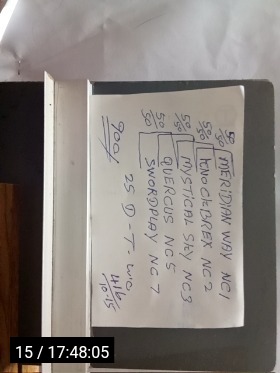 50/50 MERIDIAN WAY NC1
50/50 KNOCKBREX NC2
50/50 MYSTICAL SKY NC3
50/50 QUERCUS NC5
50 SWORDPLAY NC7
25 D-T-
15 / 17:48:05